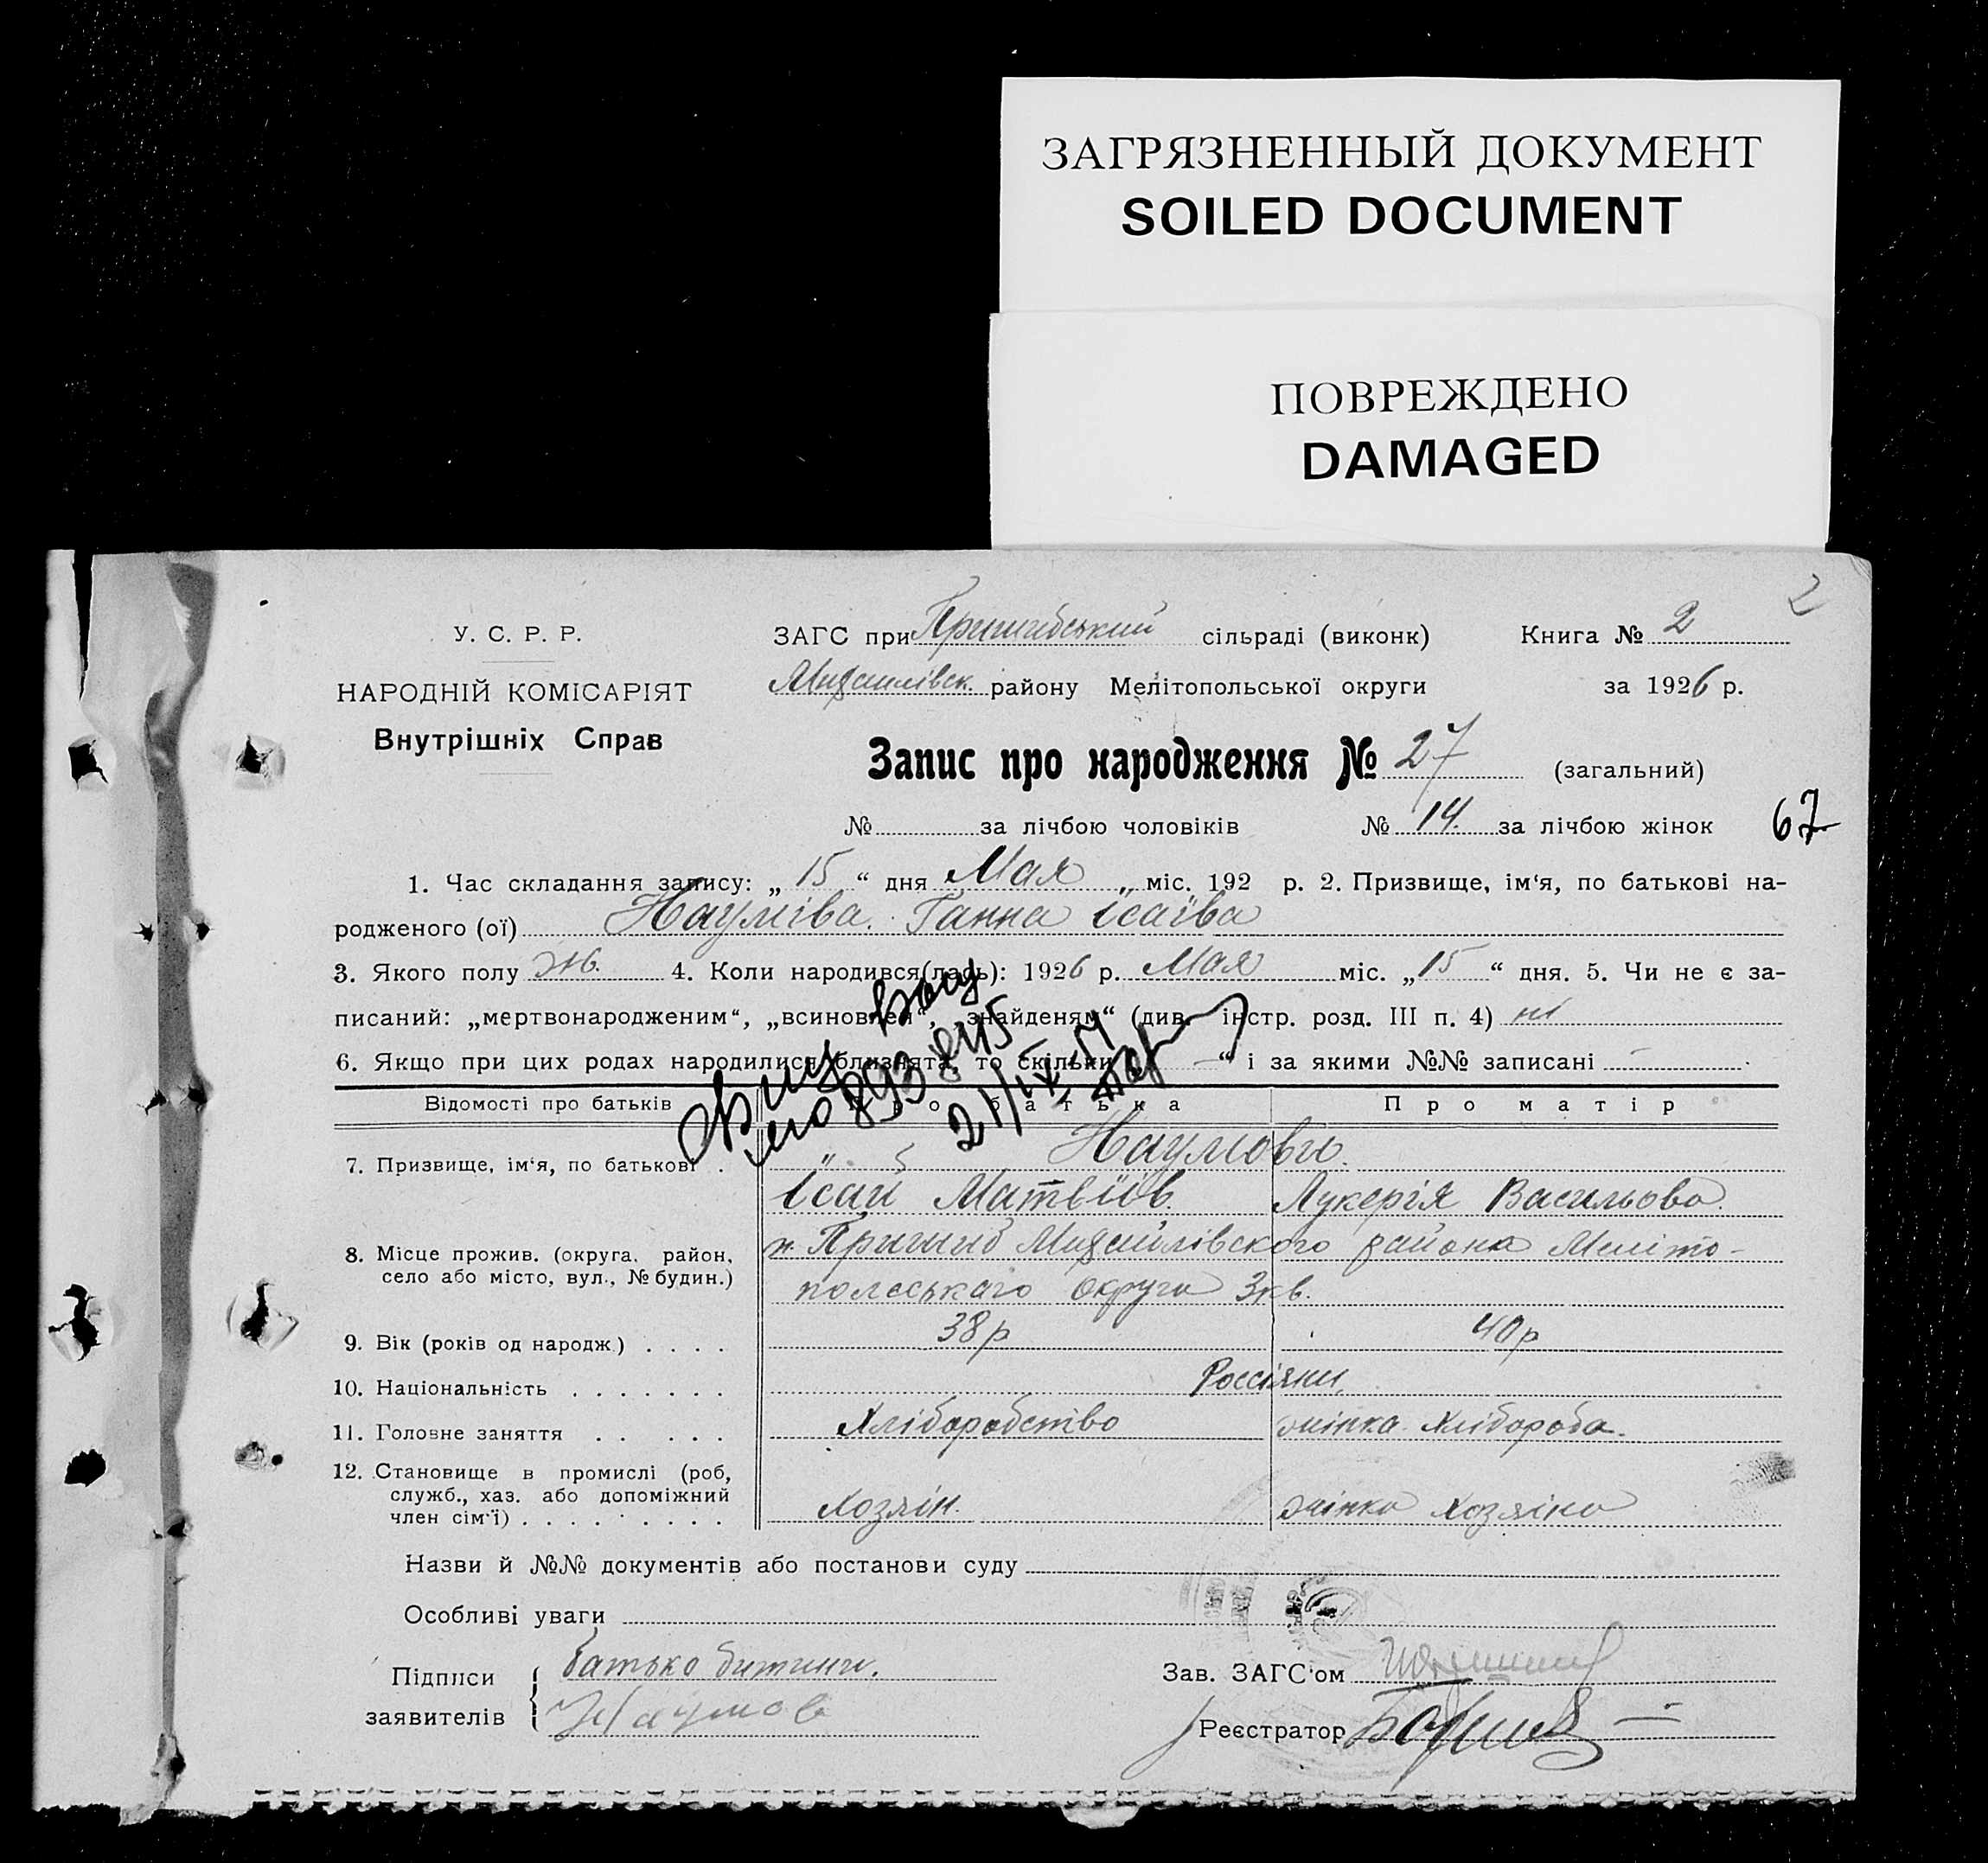 ЗАГРЯЗНЕННЫЙ ДОКУМЕНТ
SOILED DOCUMENT
ПОВРЕЖДЕНО
DAMAGED
2
У. С. Р. Р.
НАРОДНІЙ КОМІСАРІЯТ
Внутрішніх Справ
ЗАГС при Пришибський сільраді (виконк) Книга № 2
Михайлівск. району Мелітопольської округи за 1926 р.
Запис про народження № 27 (загальний)
№ за лічбою чоловіків № 14. за лічбою жінок 67
1. Час складання запису: „ 15 “ дня Мая міс. 192 р. 2. Призвище, ім‘я, по батькові на-
родженого (ої) Науміва. Ганна Ісаїва
3. Якого полу жіб. 4. Коли народився(лась): 1926 р. Мая міс. „ 15 “ дня. 5. Чи не є за-
писаний: „мертвонародженим“, „всиновлен“, „знайденям“ (див. інстр. розд. III п. 4) ні
6. Якщо при цих родах народилися близнята, то скільки “ і за якими №№ записані
893845
21/IX 51
Відомості про батьків Про батька Про матір
7. Призвище, ім‘я, по батькові . Наумовы.
Ісай Матвіїв. Лукерія Васильова.
8. Місце прожив. (округа, район, село або місто, вул., № будин.) п. Пришиб Михайлівского района Меліто-
полєськаго округи 3 кв.
9. Вік (років од народж.) . . . . 38 р 40 р
10. Національність . . . . . . . Россіяни
11. Головне заняття . . . . . Хліборобство жінка Хлібороба.
12. Становище в промислі (роб, служб., хаз. або допоміжний член сім‘ї) . . . . . . . . . Хозяїн. жінка Хозяіна
Назви й №№ документів або постанови суду
Особливі уваги
Підписи заявителів { батько дитини.
Наумов
Зав. ЗАГС‘ом
Реєстратор